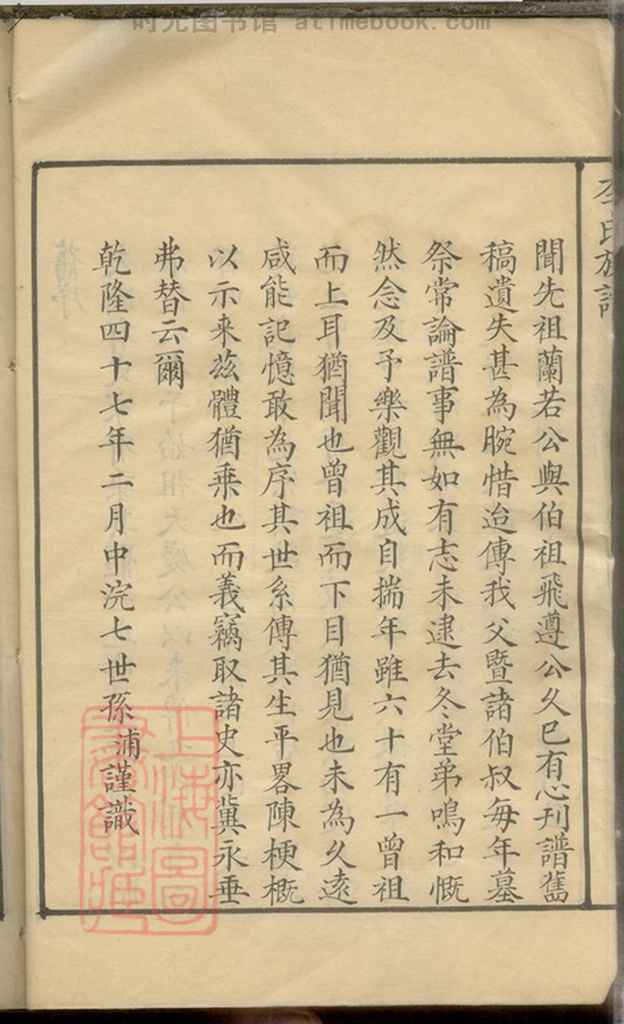 时光图书馆 atimebook.com
李氏族譜
聞先祖蘭若公與伯祖飛遵公久已有心刊譜舊
稿遺失甚為腕惜迨傳我父暨諸伯叔每年墓
祭常論譜事無如有志未逮去冬堂弟鳴和慨
然念及予樂觀其成自揣年雖六十有一曾祖
而上耳猶聞也曾祖而下目猶見也未為久遠
咸能記憶敢為序其世系傳其生平畧陳梗概
以示来茲體猶乗也而義竊取諸史亦冀永垂
弗替云爾
乾隆四十七年二月中浣七世孫浦謹識
上海圖
書館藏